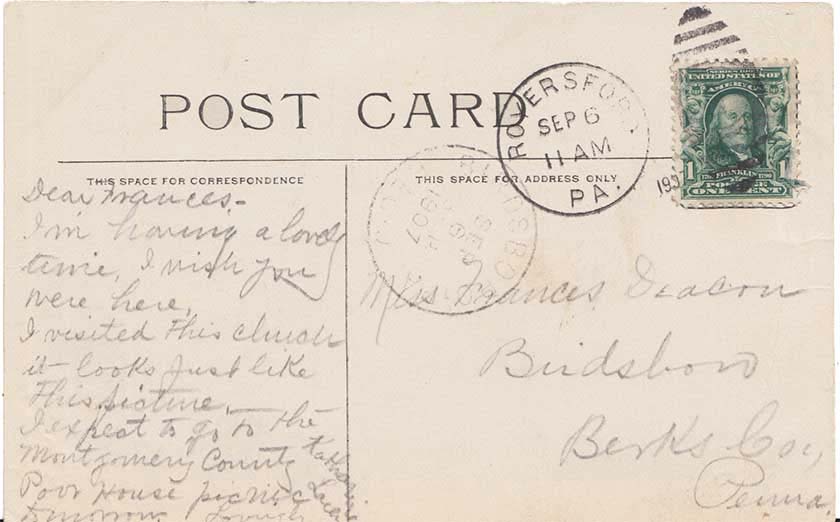 POST CARD
ROYERSFORD
SEP 6
11 AM
PA.
190
SERIES 1902
UNITED STATES OF
AMERICA
1 FRANKLIN 1790 1
POSTAGE
ONE CENT
BIRDSBORO
SEP
6
1907
THIS SPACE FOR CORRESPONDENCE
Dear Frances-
I'm having a lovely
time, I wish you
were here,
I visited This church
it looks just like
This picture.
I expect to go to the
Montgomery County
Poor House picnic
tomorrow. Lovingly
Katharine
THIS SPACE FOR ADDRESS ONLY
Miss Frances Deacon
Birdsboro
Berks Co.,
Penna